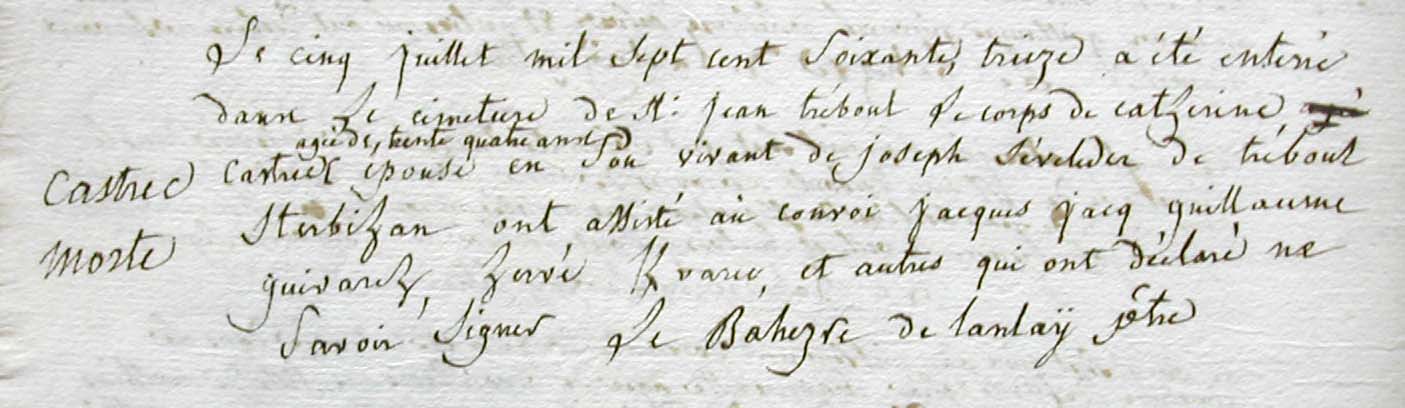 Le cinq juillet mil sept cent soixante, treize a été enterré
dans le cimetiere de St: jean trébout le corps de catherine
agée de, trente quatre anns
Castrec
Castrec épouse en son vivant de joseph de trébout
Sterbihan ont assisté au convoi jacques jacq guillaume
morte
guivarch, hervé Kvarec, et autres qui ont déclaré ne
savoir signer Le Bahezre de lanlaÿ ptre